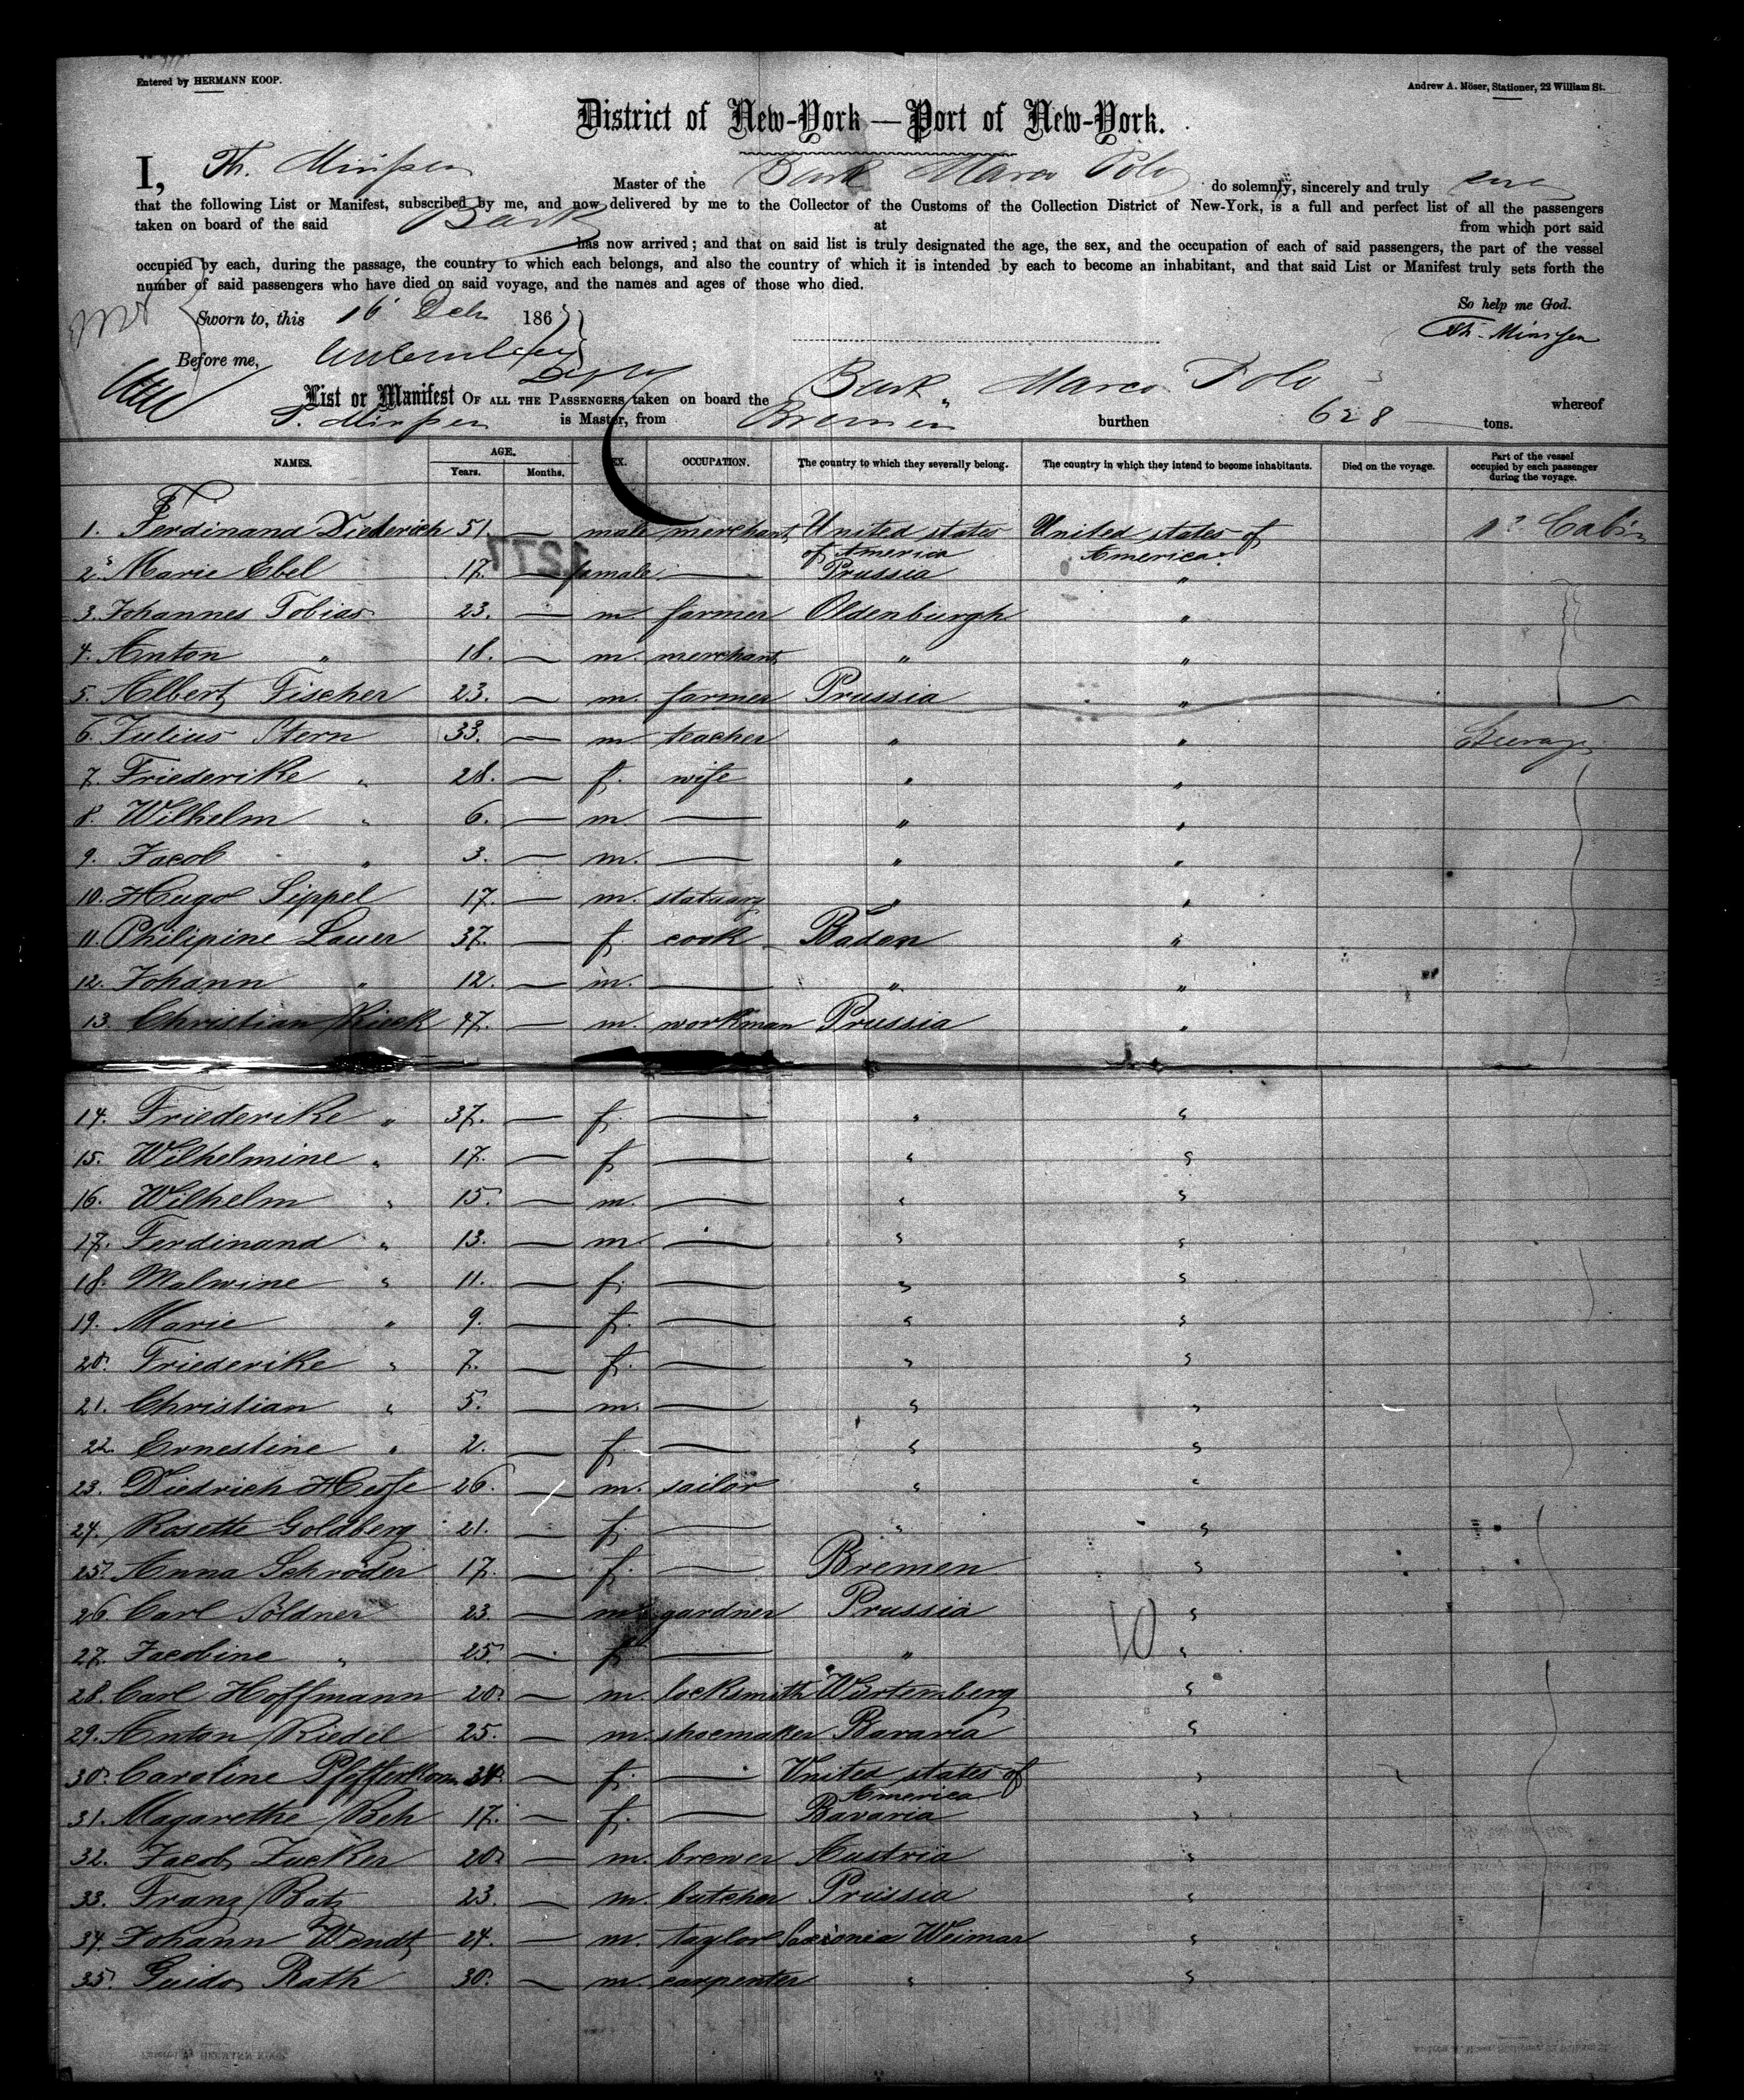 Entered by HERMANN KOOP.
Andrew A. Möser, Stationer, 22 William St.
District of New-York — Port of New-York.
I, Th. Minssen Master of the Bark Marco Polo do solemnly, sincerely and truly
that the following List or Manifest, subscribed by me, and now delivered by me to the Collector of the Customs of the Collection District of New-York, is a full and perfect list of all the passengers
taken on board of the said Bark at from which port said
has now arrived; and that on said list is truly designated the age, the sex, and the occupation of each of said passengers, the part of the vessel
occupied by each, during the passage, the country to which each belongs, and also the country of which it is intended by each to become an inhabitant, and that said List or Manifest truly sets forth the
number of said passengers who have died on said voyage, and the names and ages of those who died.
So help me God.
Sworn to, this 16 186
Th. Minssen
Before me,
List or Manifest OF ALL THE PASSENGERS taken on board the Bark Marco Polo whereof
Minssen is Master, from Bremen burthen 628 tons.
NAMES. AGE. Years. Months. SEX. OCCUPATION. The country to which they severally belong. The country in which they intend to become inhabitants. Died on the voyage. Part of the vessel occupied by each passenger during the voyage.
1. Ferdinand Diederich 51. — male merchant United states of America United states of America. Cabin
1277
2. Marie Ebel 17. — female — Prussia "
3. Johannes Tobias 23. — m. farmer Oldenburgh "
4. Anton " 18. — m. merchant " "
5. Albert Fischer 23. — m. farmer Prussia "
6. Julius Stern 33. — m. teacher " " Steerage
7. Friederike " 28. — f. wife " "
8. Wilhelm " 6. — m. — " "
9. Jacob " 3. — m. — " "
10. Hugo Sippel 17. — m. statuary " "
11. Philipine Lauer 37. — f. cook Baden "
12. Johann " 12. — m. — " "
13. Christian Rieck 47. — m. workman Prussia "
14. Friederike " 37. — f. — " "
15. Wilhelmine " 17. — f. — " "
16. Wilhelm " 15. — m. — " "
17. Ferdinand " 13. — m. — " "
18. Malwine " 11. — f. — " "
19. Marie " 9. — f. — " "
20. Friederike " 7. — f. — " "
21. Christian " 5. — m. — " "
22. Ernestine " 2. — f. — " "
23. Diedrich 26. — m. sailor " "
24. Rosette Goldberg 21. — f. — " "
25. Anna Schröder 17. — f. — Bremen "
26. Carl Söldner 23. — m. gardner Prussia "
27. Jacobine " 25. — f. — " "
10
28. Carl Hoffmann 20. — m. locksmith Würtemberg "
29. Anton Riedel 25. — m. shoemaker Bavaria "
30. Caroline Pfefferkorn — f. — United states of America "
31. Magarethe 17. — f. — Bavaria "
32. Jacob Zucker 20. — m. brewer Austria "
33. Franz Rotz 23. — m. butcher Prussia "
34. Johann Wendt 24. — m. taylor Saxonia Weimar "
35. Guido Rath 30. — m. carpenter " "